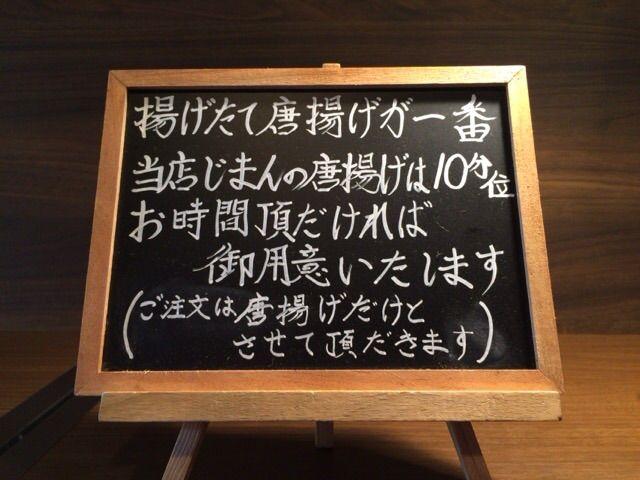 揚げたて唐揚げが一番
当店じまんの唐揚げは10分位
お時間頂だければ
御用意いたします
(ご注文は唐揚げだけと
させて頂だきます)